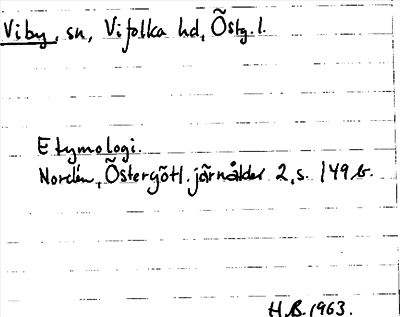 Viby, sn, Vifolka hd, Östg.l.
Etymologi.
Nordén, Östergötl. järnålder 2, s. 149 b.
H.B. 1963.